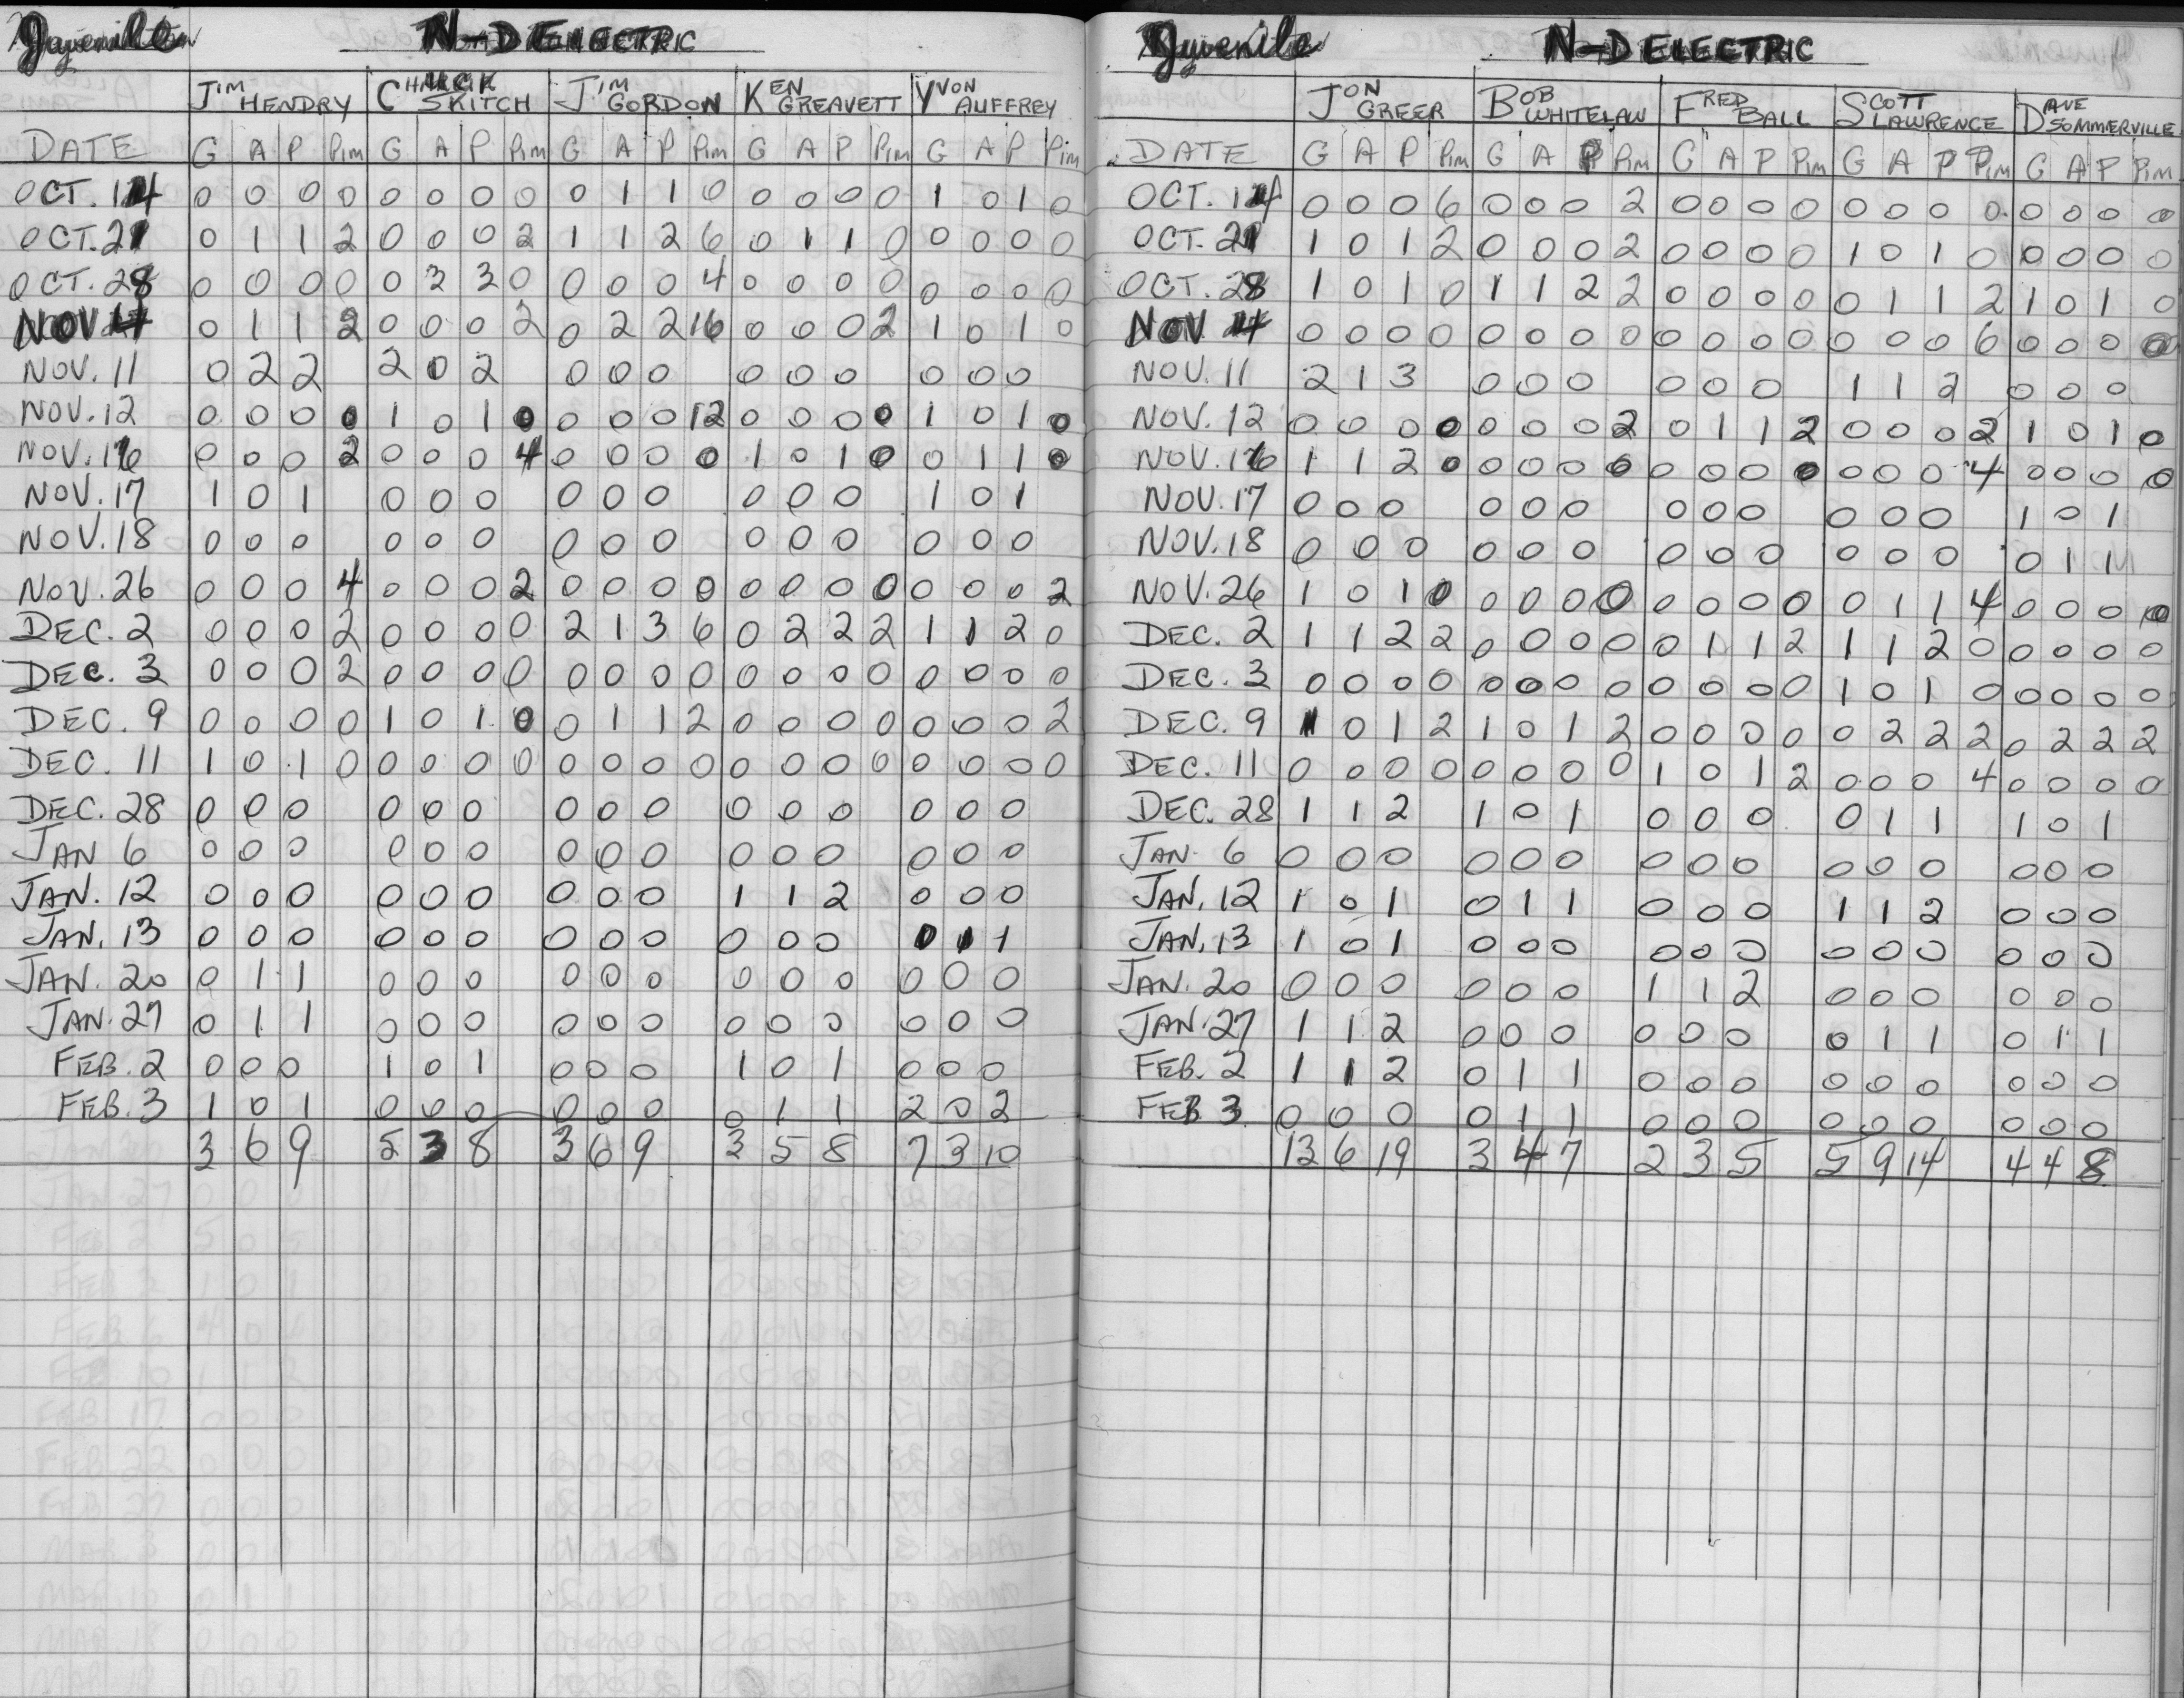 Juvenile N-D ELECTRIC
JIM HENDRY CHUCK SKITCH JIM GORDON KEN GREAVETT YVON AUFFREY
DATE G A P Pim G A P Pim G A P Pim G A P Pim G A P Pim
OCT. 14 0 0 0 0 0 0 0 0 0 1 1 0 0 0 0 0 1 0 1 0
OCT. 21 0 1 1 2 0 0 0 2 1 1 2 6 0 1 1 0 0 0 0 0
OCT. 28 0 0 0 0 0 3 3 0 0 0 0 4 0 0 0 0 0 0 0 0
NOV 4 0 1 1 2 0 0 0 2 0 2 2 16 0 0 0 2 1 0 1 0
NOV. 11 0 2 2 2 0 2 0 0 0 0 0 0 0 0 0
NOV. 12 0 0 0 0 1 0 1 0 0 0 0 12 0 0 0 0 1 0 1 0
NOV. 16 0 0 0 2 0 0 0 4 0 0 0 0 1 0 1 0 0 1 1 0
NOV. 17 1 0 1 0 0 0 0 0 0 0 0 0 1 0 1
NOV. 18 0 0 0 0 0 0 0 0 0 0 0 0 0 0 0
NOV. 26 0 0 0 4 0 0 0 2 0 0 0 0 0 0 0 0 0 0 0 2
DEC. 2 0 0 0 2 0 0 0 0 2 1 3 6 0 2 2 2 1 1 2 0
DEC. 3 0 0 0 2 0 0 0 0 0 0 0 0 0 0 0 0 0 0 0 0
DEC. 9 0 0 0 0 1 0 1 0 0 1 1 2 0 0 0 0 0 0 0 2
DEC. 11 1 0 1 0 0 0 0 0 0 0 0 0 0 0 0 0 0 0 0 0
DEC. 28 0 0 0 0 0 0 0 0 0 0 0 0 0 0 0
JAN 6 0 0 0 0 0 0 0 0 0 0 0 0 0 0 0
JAN. 12 0 0 0 0 0 0 0 0 0 1 1 2 0 0 0
JAN. 13 0 0 0 0 0 0 0 0 0 0 0 0 0 1 1
JAN. 20 0 1 1 0 0 0 0 0 0 0 0 0 0 0 0
JAN. 27 0 1 1 0 0 0 0 0 0 0 0 0 0 0 0
FEB. 2 0 0 0 1 0 1 0 0 0 1 0 1 0 0 0
FEB. 3 1 0 1 0 0 0 0 0 0 0 1 1 2 0 2
3 6 9 5 3 8 3 6 9 3 5 8 7 3 10
Juvenile N-D ELECTRIC
JON GREER BOB WHITELAW FRED BALL SCOTT LAWRENCE DAVE SOMMERVILLE
DATE G A P Pim G A P Pim G A P Pim G A P Pim G A P Pim
OCT. 14 0 0 0 6 0 0 0 2 0 0 0 0 0 0 0 0 0 0 0 0
OCT. 21 1 0 1 2 0 0 0 2 0 0 0 0 1 0 1 0 0 0 0 0
OCT. 28 1 0 1 0 1 1 2 2 0 0 0 0 0 1 1 2 1 0 1 0
NOV 4 0 0 0 0 0 0 0 0 0 0 0 0 0 0 0 6 0 0 0 0
NOV. 11 2 1 3 0 0 0 0 0 0 1 1 2 0 0 0
NOV. 12 0 0 0 0 0 0 0 2 0 1 1 2 0 0 0 2 1 0 1 0
NOV. 16 1 1 2 0 0 0 0 0 0 0 0 0 0 0 0 4 0 0 0 0
NOV. 17 0 0 0 0 0 0 0 0 0 0 0 0 1 0 1
NOV. 18 0 0 0 0 0 0 0 0 0 0 0 0 0 1 1
NOV. 26 1 0 1 0 0 0 0 0 0 0 0 0 0 1 1 4 0 0 0 0
DEC. 2 1 1 2 2 0 0 0 0 0 1 1 2 1 1 2 0 0 0 0 0
DEC. 3 0 0 0 0 0 0 0 0 0 0 0 0 1 0 1 0 0 0 0 0
DEC. 9 1 0 1 2 1 0 1 2 0 0 0 0 0 2 2 2 0 2 2 2
DEC. 11 0 0 0 0 0 0 0 0 1 0 1 2 0 0 0 4 0 0 0 0
DEC. 28 1 1 2 1 0 1 0 0 0 0 1 1 1 0 1
JAN. 6 0 0 0 0 0 0 0 0 0 0 0 0 0 0 0
JAN. 12 1 0 1 0 1 1 0 0 0 1 1 2 0 0 0
JAN. 13 1 0 1 0 0 0 0 0 0 0 0 0 0 0 0
JAN. 20 0 0 0 0 0 0 1 1 2 0 0 0 0 0 0
JAN. 27 1 1 2 0 0 0 0 0 0 0 1 1 0 1 1
FEB. 2 1 1 2 0 1 1 0 0 0 0 0 0 0 0 0
FEB 3 0 0 0 0 1 1 0 0 0 0 0 0 0 0 0
13 6 19 3 4 7 2 3 5 5 9 14 4 4 8